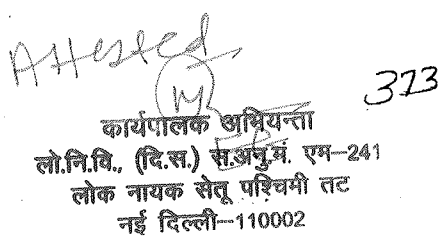 Attested
373
कार्यपालक अभियन्ता
लो.नि.वि., (दि.स.) स.अनु.मं. एम–241
लोक नायक सेतू पश्चिमी तट
नई दिल्ली–110002